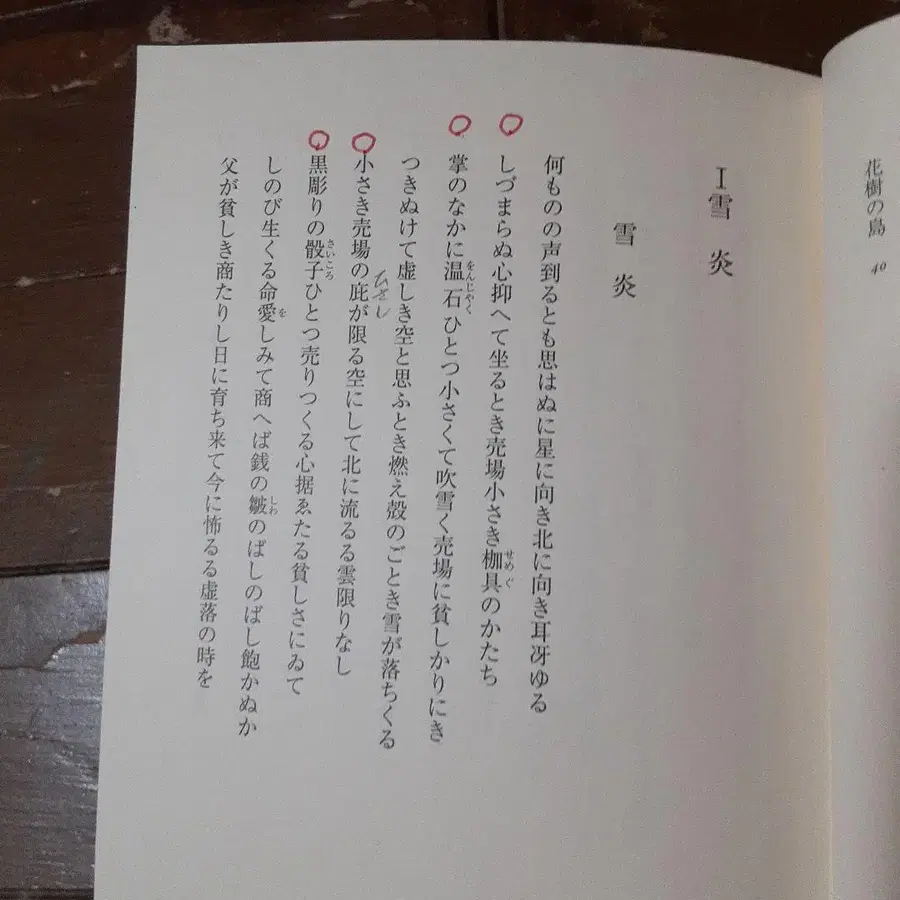 花樹の島 40
I 雪炎
雪炎
何ものの声到るとも思はぬに星に向き北に向き耳冴ゆる
しづまらぬ心抑へて坐るとき売場小さき枷具のかたち
せめぐ
掌のなかに温石ひとつ小さくて吹雪く売場に貧しかりにき
をんじやく
つきぬけて虚しき空と思ふとき燃え殻のごとき雪が落ちくる
小さき売場の庇が限る空にして北に流るる雲限りなし
ひさし
黒彫りの骰子ひとつ売りつくる心据ゑたる貧しさにゐて
さいころ
しのび生くる命愛しみて商へば銭の皺のばしのばし飽かぬか
を
しわ
父が貧しき商たりし日に育ち来て今に怖るる虚落の時を